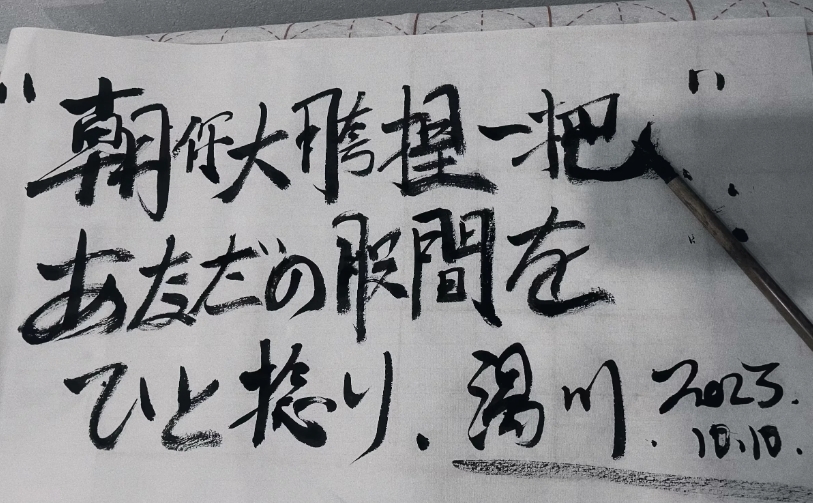 "朝你大胯捏一把"
あ友だの股間を
ひと捻り. 湯川. 2023.
10.10.